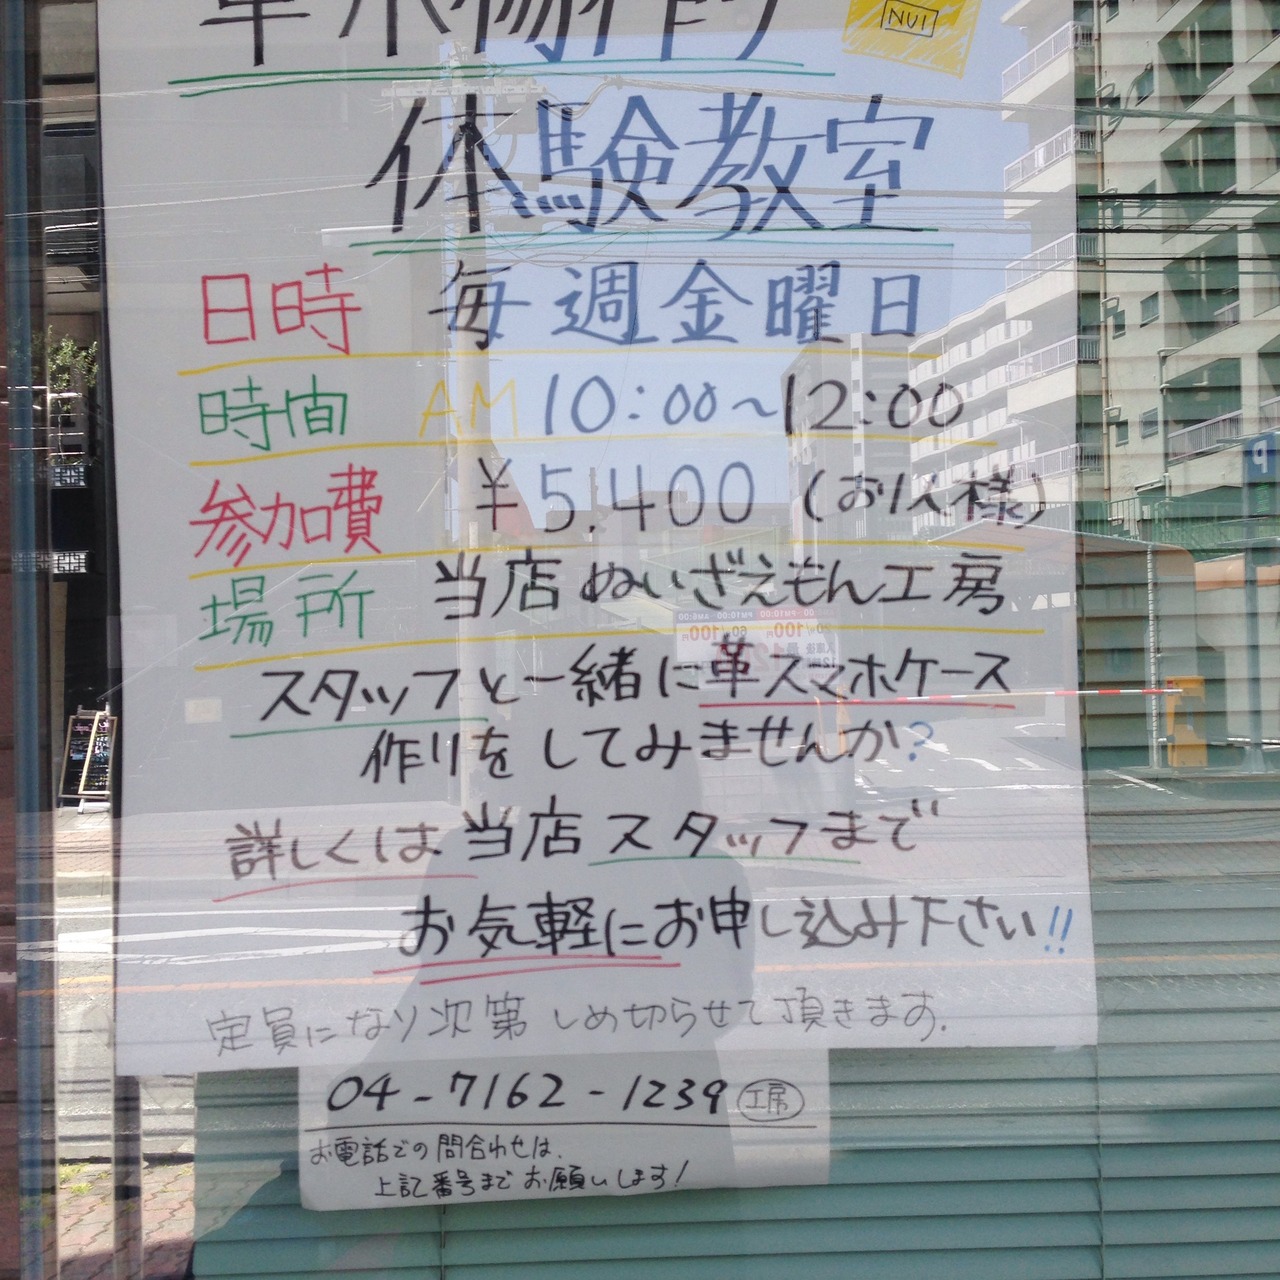 革小物作り
NUI
体験教室
日時 毎週金曜日
時間 AM 10:00~12:00
参加費 ¥5,400 (お1人様)
場所 当店ぬいざえもん工房
スタッフと一緒に革スマホケース
作りをしてみませんか?
詳しくは当店スタッフまで
お気軽にお申し込み下さい!!
定員になり次第しめ切らせて頂きます.
04-7162-1239 工房
お電話での問合わせは、
上記番号までお願いします!
P